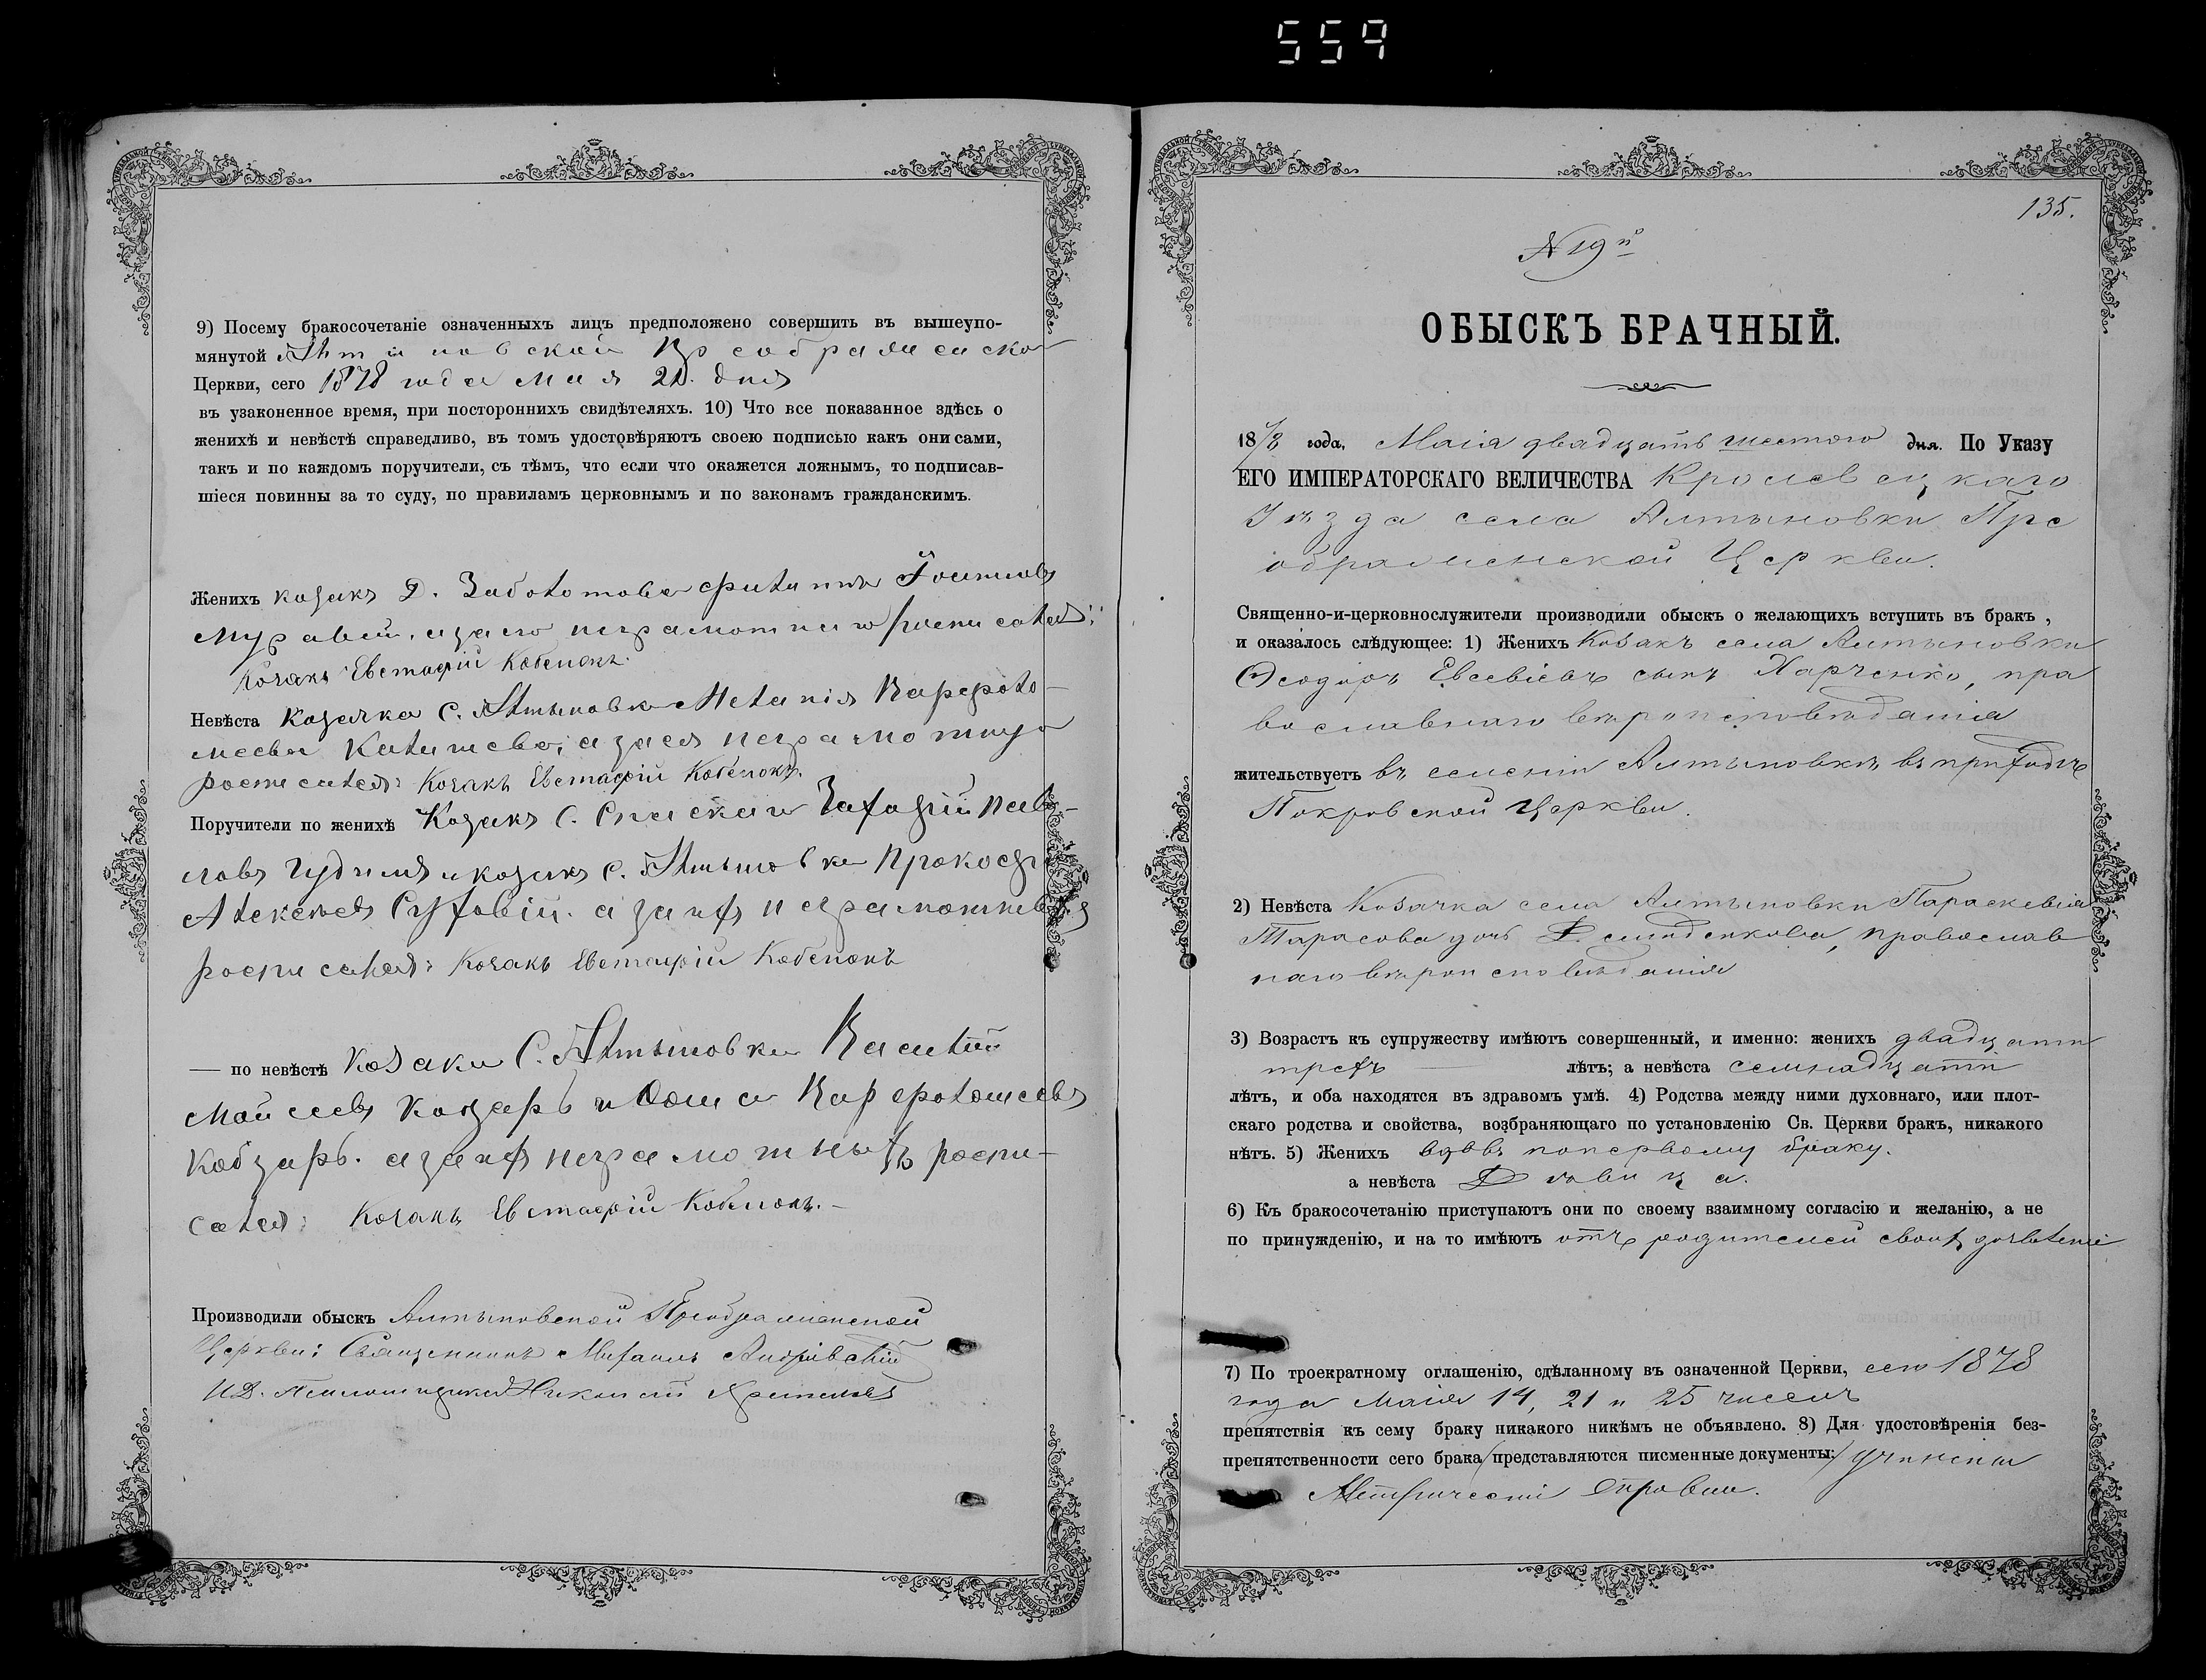 559
9) Посему бракосочетаніе означенныхъ лицъ предположено совершить въ вышеупо-
мянутой
Церкви, сего 1878 года мая дня
въ узаконенное время, при постороннихъ свидѣтеляхъ. 10) Что все показанное здѣсь о
женихѣ и невѣстѣ справедливо, въ томъ удостовѣряютъ своею подписью какъ они сами,
такъ и по каждомъ поручители, съ тѣмъ, что если что окажется ложнымъ, то подписав-
шіеся повинны за то суду, по правиламъ церковнымъ и по законамъ гражданскимъ.
Женихъ козакъ Д.
Муравей, а за его неграмотнаго росписался:
Козакъ Евстафій
Невѣста Козачка С. Алтыновки Меланія Варфоло-
меева а за ея неграмотную
росписался: Козакъ Евстафій
Поручители по женихѣ Козакъ С. Спаскаго
и козакъ С. Алтыновки Прокофій
Алексѣевъ а за ихъ неграмотныхъ
росписался: Козакъ Евстафій
— по невѣстѣ Козаки С. Алтыновки Василій
Мойсеевъ и Фома Варфоломеевъ
Кобзарь. а за ихъ неграмотныхъ роспи-
сался: Козакъ Евстафій
Производили обыскъ Алтыновской Преображенской
Церкви: Священникъ Михаилъ
И.Д. Псаломщика
135.
N 19й
ОБЫСКЪ БРАЧНЫЙ.
1878 года, Маія двадцать шестого дня. По Указу
ЕГО ИМПЕРАТОРСКАГО ВЕЛИЧЕСТВА Кролевецкаго
Уѣзда села Алтыновки Пре
ображенской Церкви.
Священно-и-церковнослужители производили обыскъ о желающихъ вступить въ бракъ,
и оказалось слѣдующее: 1) Женихъ Козакъ села Алтыновки
Ѳеодоръ Евсевіевъ сынъ Харченко, пра
вославнаго вѣроисповѣданія
жительствуетъ въ селеніи Алтыновкѣ въ приходѣ
Покровской Церкви.
2) Невѣста Козачка села Алтыновки Параскевія
Тарасова дочь православ
наго вѣроисповѣданія
3) Возрастъ къ супружеству имѣютъ совершенный, и именно: женихъ двадцати
трехъ — лѣтъ; а невѣста семнадцати
лѣтъ, и оба находятся въ здравомъ умѣ. 4) Родства между ними духовнаго, или плот-
скаго родства и свойства, возбраняющаго по установленію Св. Церкви бракъ, никакого
нѣтъ. 5) Женихъ вдовъ по первому браку.
а невѣста Дѣвица.
6) Къ бракосочетанію приступаютъ они по своему взаимному согласію и желанію, а не
по принужденію, и на то имѣютъ отъ родителей своихъ
7) По троекратному оглашенію, сдѣланному въ означенной Церкви, сего 1878
года Маія 14, 21 и 25 числъ
препятствія къ сему браку никакого никѣмъ не объявлено. 8) Для удостовѣренія без-
препятственности сего брака (представляются писменные документы:) учинены